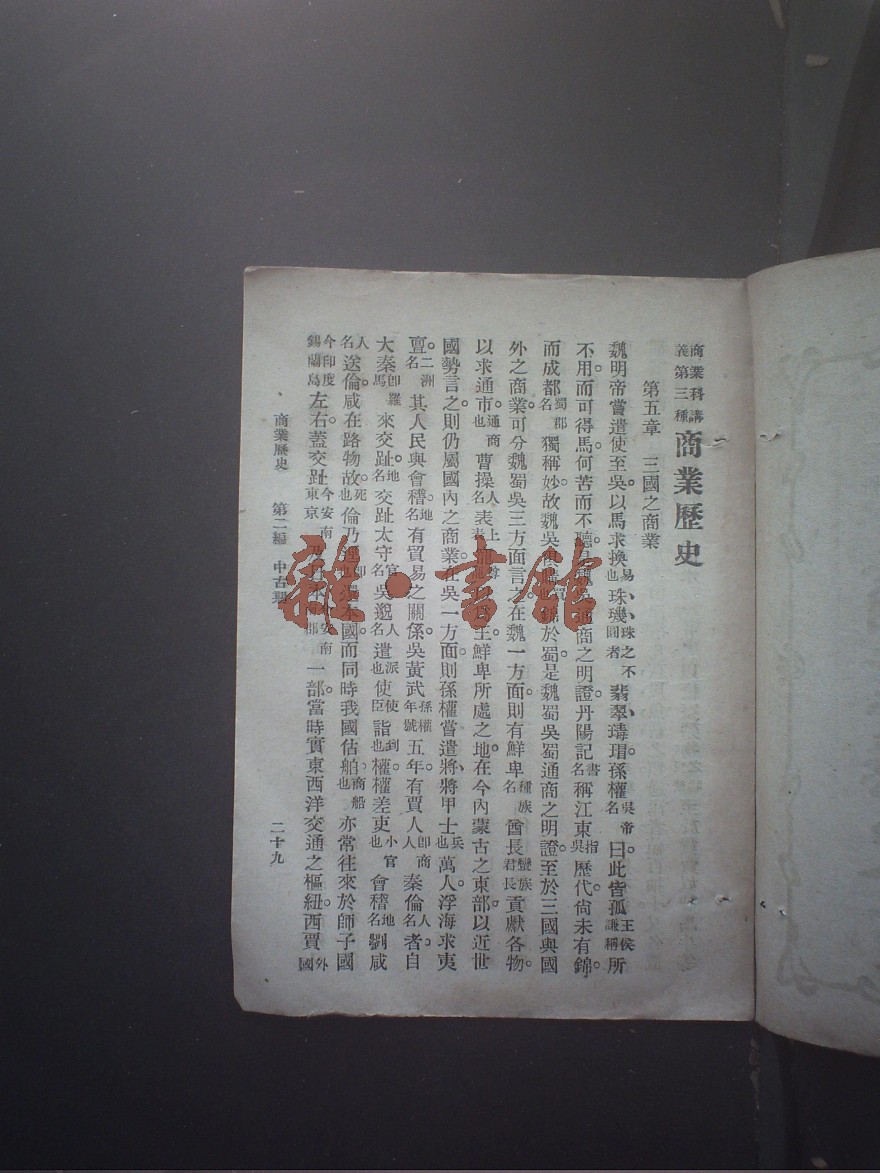 商業科講義第三種 商業歷史
第五章 三國之商業
魏明帝嘗遣使至吳以馬求換易也珠璣珠之不圓者翡翠瑇瑁。孫權吳帝名曰此皆孤王侯謙稱所
不用。而可得馬何苦而不聽。通商之明證丹陽記書名稱江東指吳歷代尙未有錦。
而成都蜀郡名獨稱妙。故魏吳於蜀。是魏蜀吳蜀通商之明證。至於三國與國
外之商業。可分魏蜀吳三方面言之。在魏一方面。則有鮮卑種族名酋長蠻族君長貢獻各物。
以求通市通商也。曹操人名表王。鮮卑所處之地。在今內蒙古之東部。以近世
國勢言之。則仍屬國內之商業。在吳一方面。則孫權嘗遣將、將甲士兵也萬人。浮海求夷
亶。二洲名其人民與會稽地名有貿易之關係。吳黃武孫權年號五年。有賈人卽商人秦倫人名者。自
大秦卽羅馬來交趾。地名交趾太守官名吳邈人名遣派也使使臣詣到也權。權差吏小官也會稽地名劉咸
人名送倫。咸在路物故。死也倫乃本國。而同時我國估舶、商船也亦常往來於師子國
今印度錫蘭島左右。蓋交趾今安南東京一部。當時實東西洋交通之樞紐。西賈外國
商業歷史 第二編 中古期 二十九
雜·書館